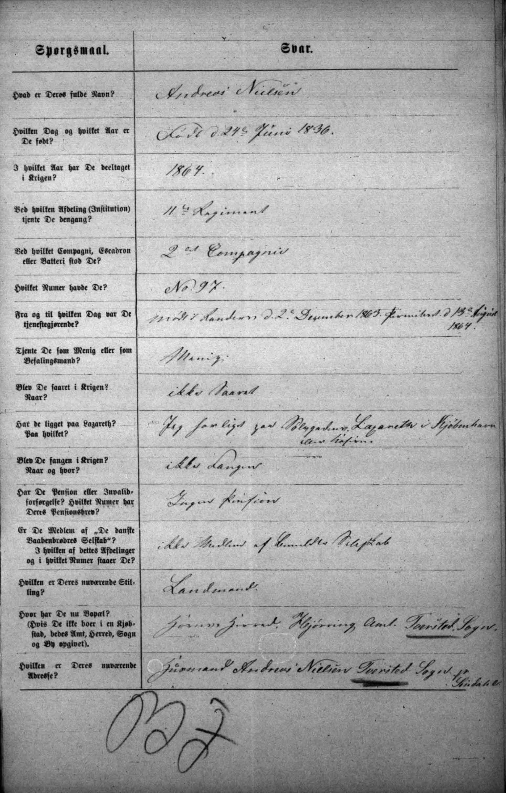 Spørgsmaal. Svar.
Hvad er Deres fulde Navn? Andreas Nielsen
Hvilken Dag og hvilket Aar er Født d 24de Juni 1836.
De født?
I hvilket Aar har De deeltaget 1864.
i Krigen?
Ved hvilken Afdeling (Institution) 11te Regiment
tjente De dengang?
Ved hvilket Compagni, Escadron 2det Compagnie
eller Batteri stod De?
Hvilket Numer havde De? No 97.
Fra og til hvilken Dag var De Mødt i Randers d. 2de Dezember 1863. Permiteret d 13de
tjenestegjørende? 1864.
Tjente De som Menig eller som Menig.
Befalingsmand?
Blev De saaret i Krigen? ikke Saaret
Naar?
Har De ligget paa Lazareth? Jeg har ligt paa Lazareth i Kjøbenhavn
Paa hvilket?
Blev De fangen i Krigen? ikke Fangen
Naar og hvor?
Har De Pension eller Invalid- Ingen Pension
forsørgelse? Hvilket Numer har
Deres Pensionsbrev?
Er De Medlem af „De danske ikke Medlem af
Vaabenbrødres Selskab“?
I hvilken af dettes Afdelinger
og i hvilket Numer staaer De?
Hvilken er Deres nuværende Stil- Landmand.
ling?
Hvor har De nu Bopæl? Herred. Hjørring Amt. Tversted Sogn.
(Hvis De ikke boer i en Kjøb-
stad, bedes Amt, Herred, Sogn
og By opgivet).
Hvilken er Deres nuværende Huusmand Andreas Nielsen Tversted Sogn
Adresse? Sindal